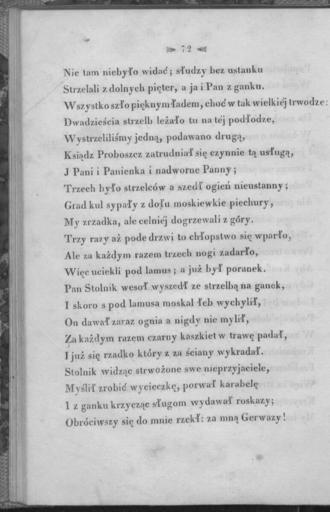 72
Nie tam niebyło widać; słudzy bez ustanku
Strzelali z dolnych pięter, a ja i Pan z ganku.
Wszystko szło pięknym ładem, choć w tak wielkiéj trwodze:
Dwadzieścia strzelb leżało tu na téj podłodze,
Wystrzeliliśmy jedną, podawano drugą,
Ksiądz Proboszcz zatrudniał się czynnie tą usługą,
J Pani i Panienka i nadworne Panny;
Trzech było strzelców a szedł ogień nieustanny;
Grad kul sypały z dołu moskiewkie piechury,
My zrzadka, ale celniéj dogrzewali z góry.
Trzy razy aż pode drzwi to chłopstwo się wparło,
Ale za każdym razem trzech nogi zadarło,
Więc uciekli pod lamus; a już był poranek.
Pan Stolnik wesoł wyszedł ze strzelbą na ganek,
I skoro z pod lamusa moskal łeb wychylił,
On dawał zaraz ognia a nigdy nie mylił,
Za każdym razem czarny kaszkiet w trawę padał,
I już się rzadko który z za ściany wykradał.
Stolnik widząc strwożone swe nieprzyjaciele,
Myślił zrobić wycieczkę, porwał karabelę
I z ganku krzycząc sługom wydawał roskazy;
Obróciwszy się do mnie rzekł: za mną Gerwazy!